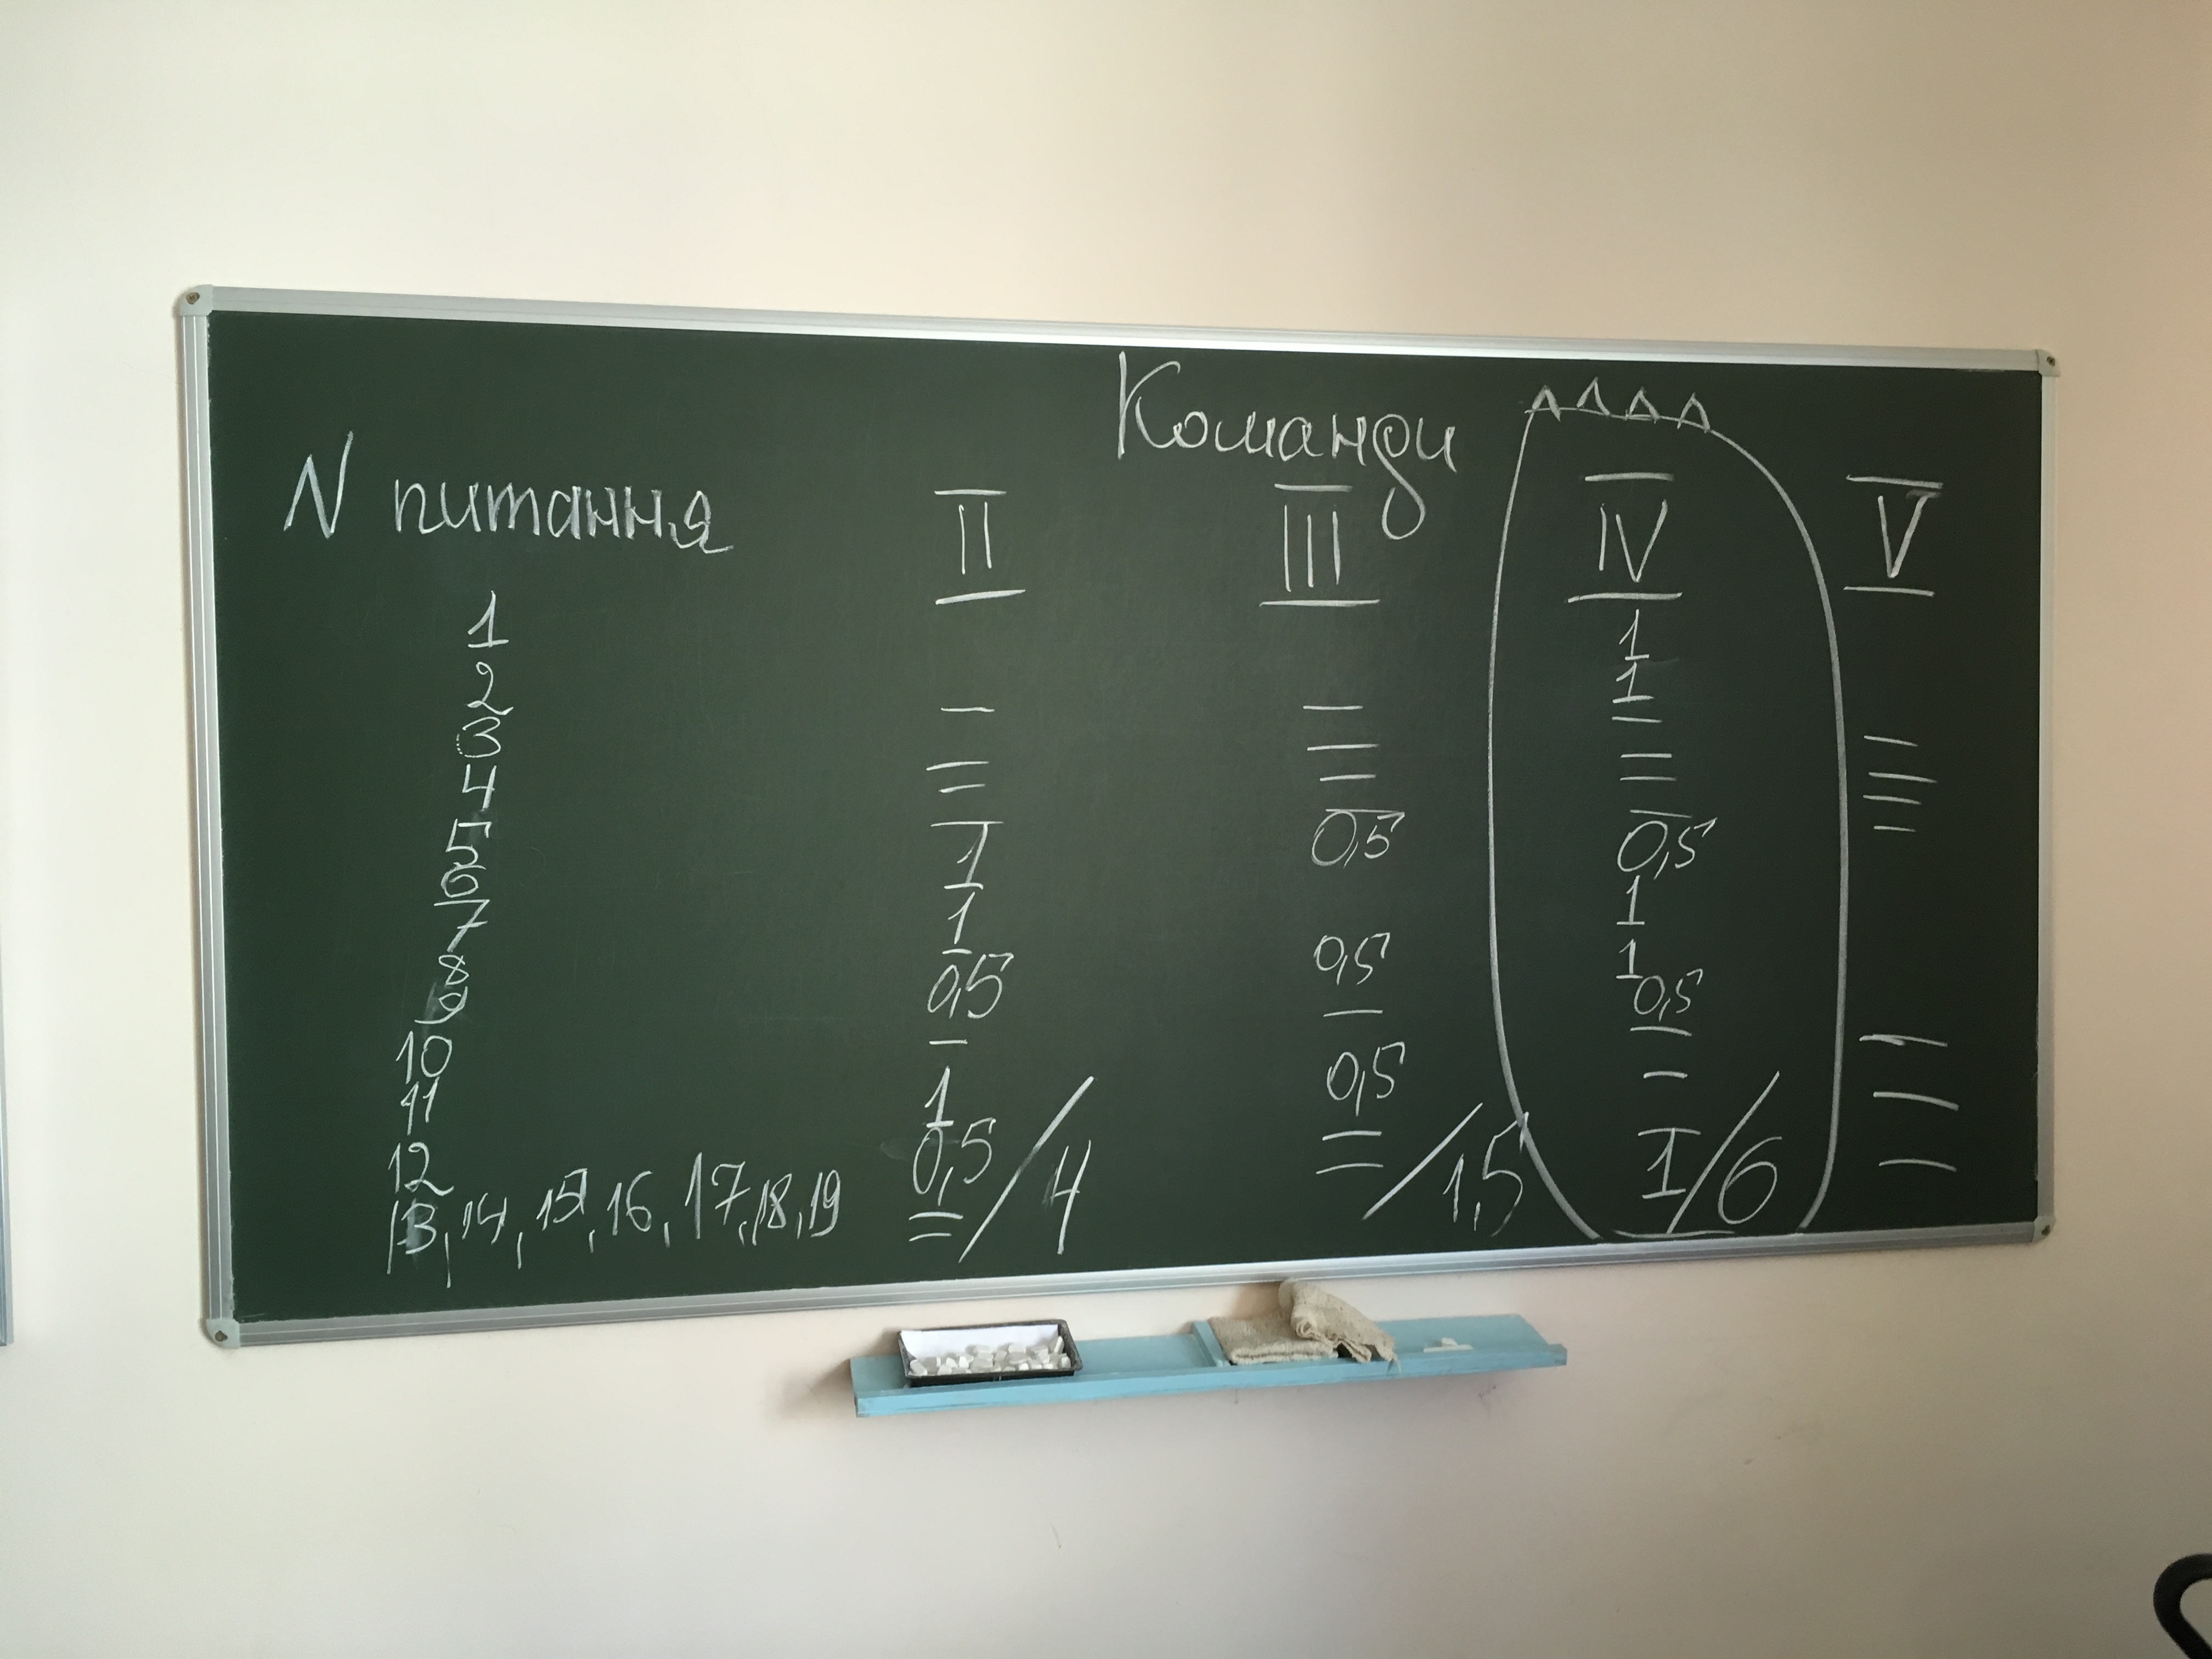 Команди
N питання II III IV V
1 1
2 – – 1
3 – – – –
4 – – – –
5 – – – –
6 1 0,5 – –
7 1 0,5
8 0,5 0,5 1
9 – 1
10 – 0,5 0,5 –
11 1 0,5 – –
12 0,5 – – –
13, 14, 15, 16, 17, 18, 19 = / 4 – / 1,5 1 / 6